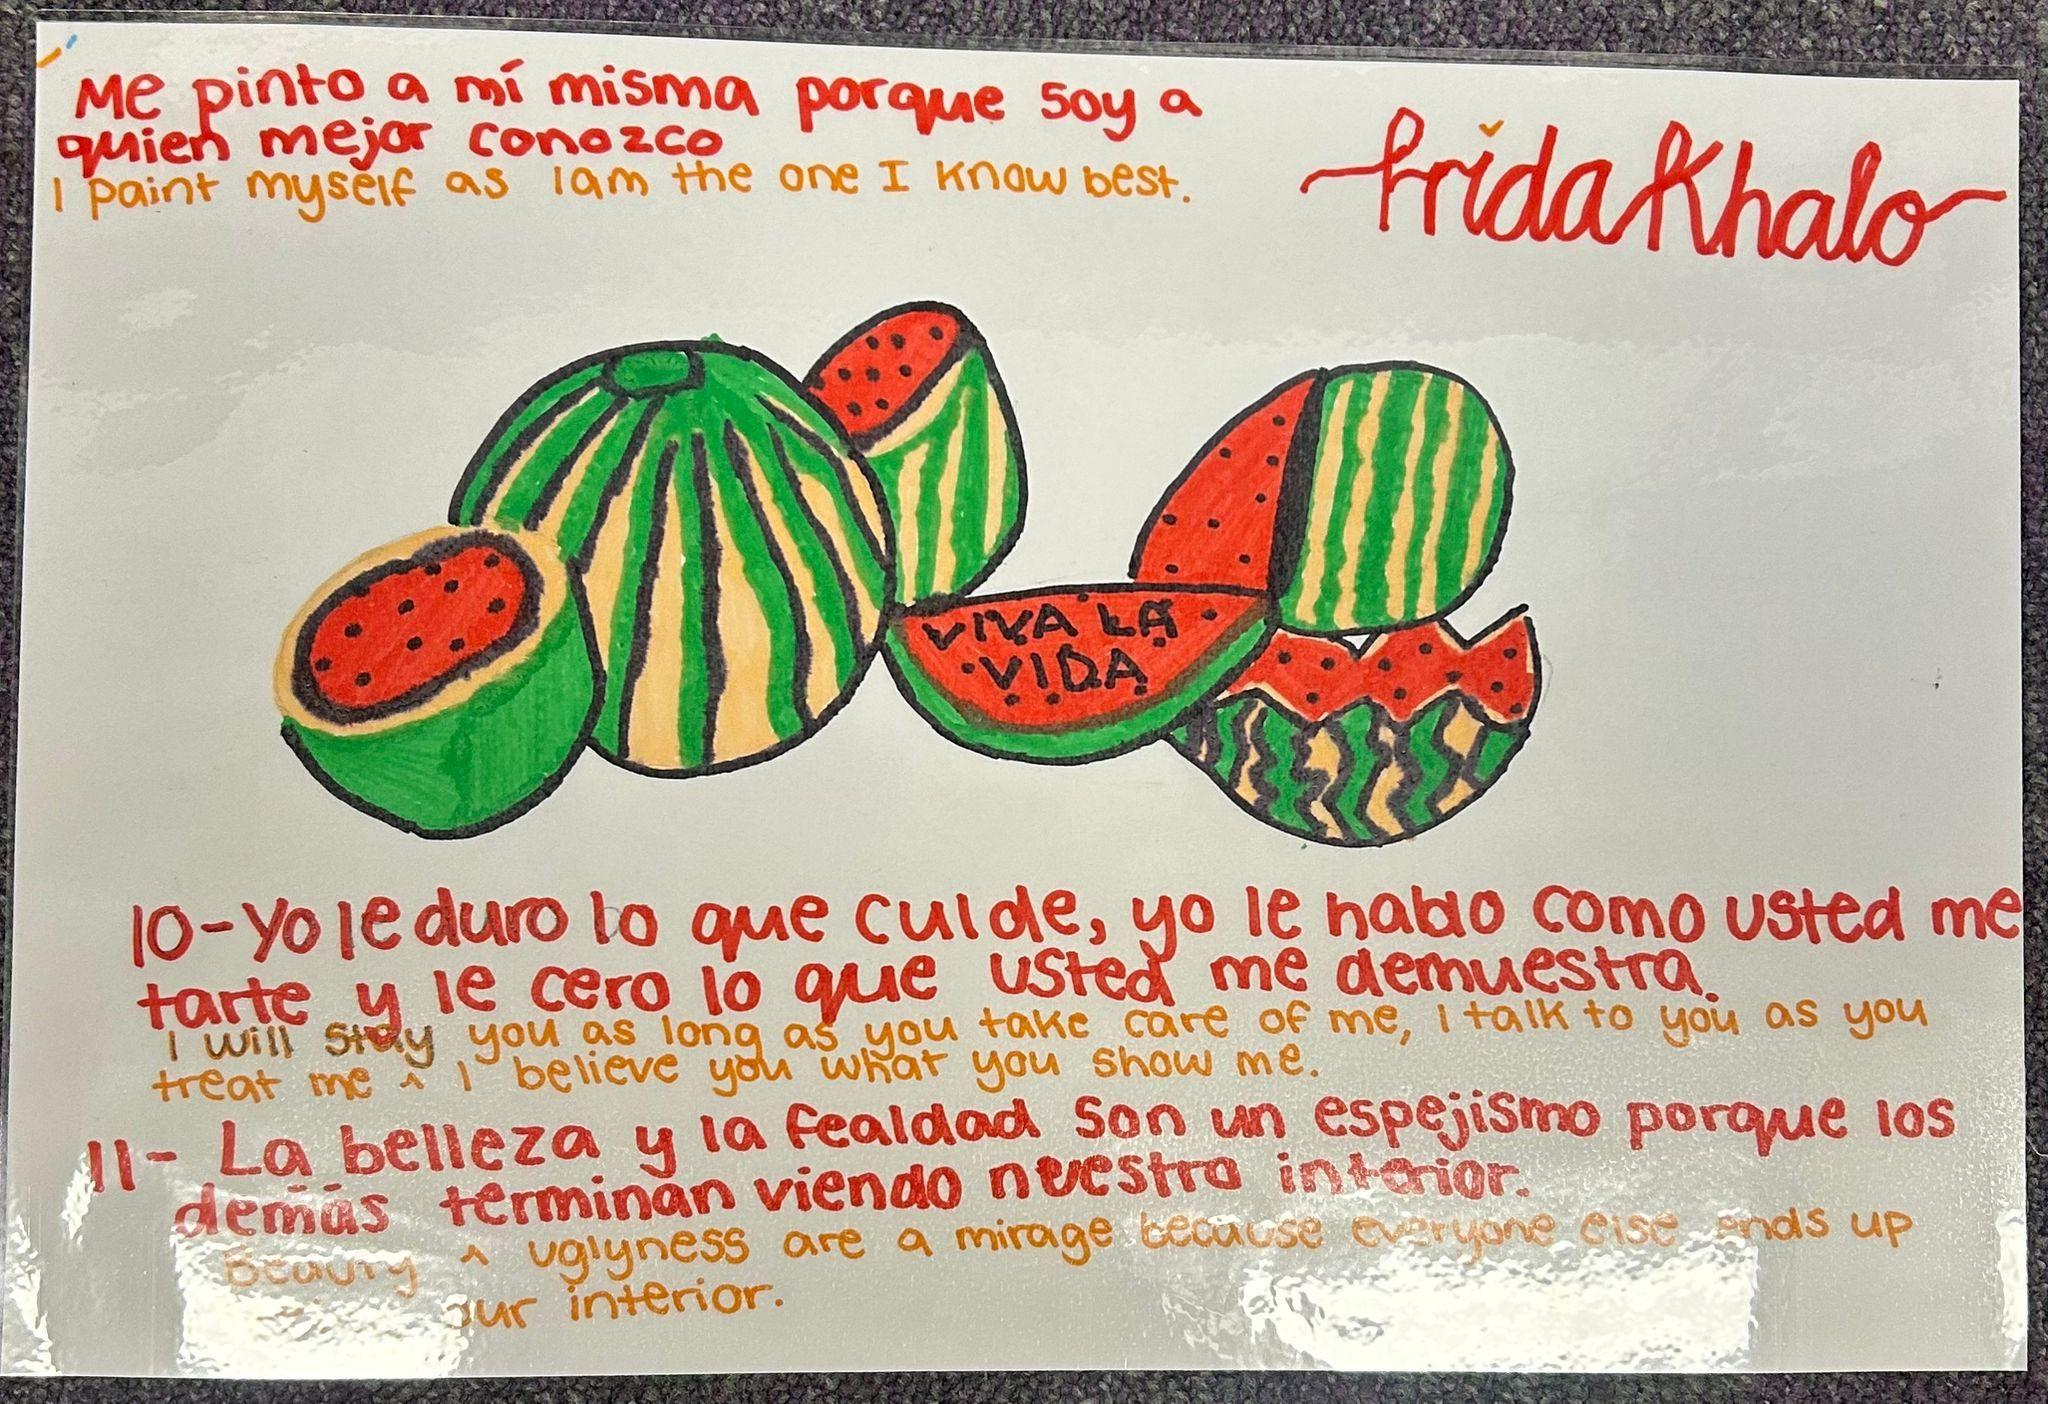 Me pinto a mí misma porque soy a
quien mejor conozco
I paint myself as I am the one I know best.
Frida Khalo
VIVA LA
VIDA
10-Yo le duro lo que cuide, yo le hablo como usted me
tarte y le cero lo que usted me demuestra.
I will stay you as long as you take care of me, I talk to you as you
treat me ^ I believe you what you show me.
11- La belleza y la fealdad son un espejismo porque los
demás terminan viendo nuestro interior.
Beauty ^ uglyness are a mirage because everyone else ends up
our interior.